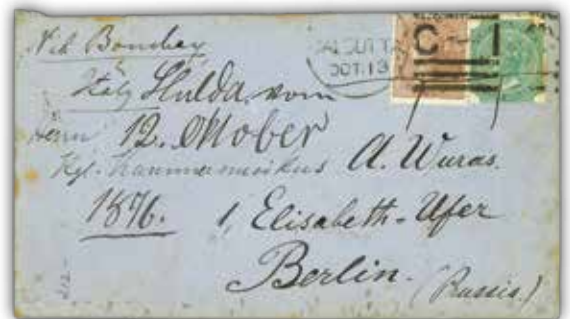 Via Bombay
CALCUTTA
OCT. 13
C - 1
Hulda vom
Herrn 12. Oktober
Kgl. Kammermusikus A. Wuras.
1876. 1, Elisabeth-Ufer
Berlin. (Prussia.)